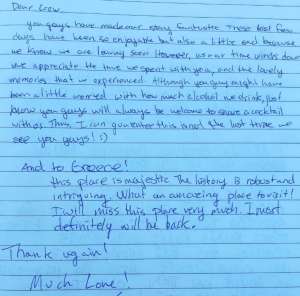 Dear Crew,
you guys have made our stay fantastic. These past few
days have been so enjoyable but also a little sad because
we know we are leaving soon. However, as our time winds down
we appreciate the time we spent with you, and the lovely
memories that we experienced. Although you guys might have
been a little worried with how much alcohol we drink, just
know you guys will always be welcome to share a cocktail
with us. Thus, I can guarentee this is not the last time we
see you guys! :)
And to Greece!
this place is majestic. The history is robust and
intriguing. What an amazing place to visit!
I will miss this place very much. I
definitely will be back.
Thank you again!
Much Love!